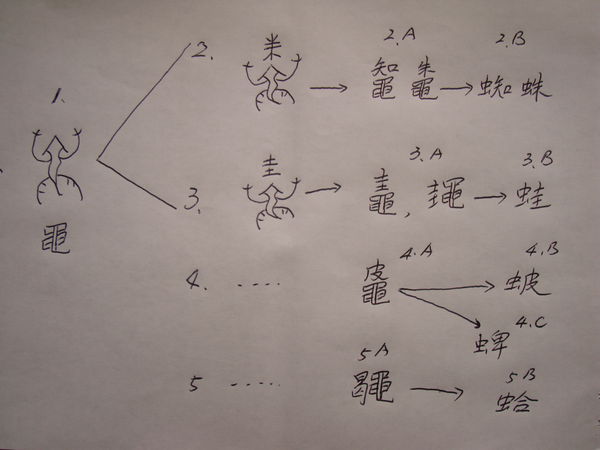 1.
黽
2.
2.A
2.B
鼅 鼄 → 蜘蛛
3.
圭
3.A
3.B
鼃, 䵷 → 蛙
4. ....
4.A
4.B
蚾
4.C
蜱
5 .....
5A
5B
蛤